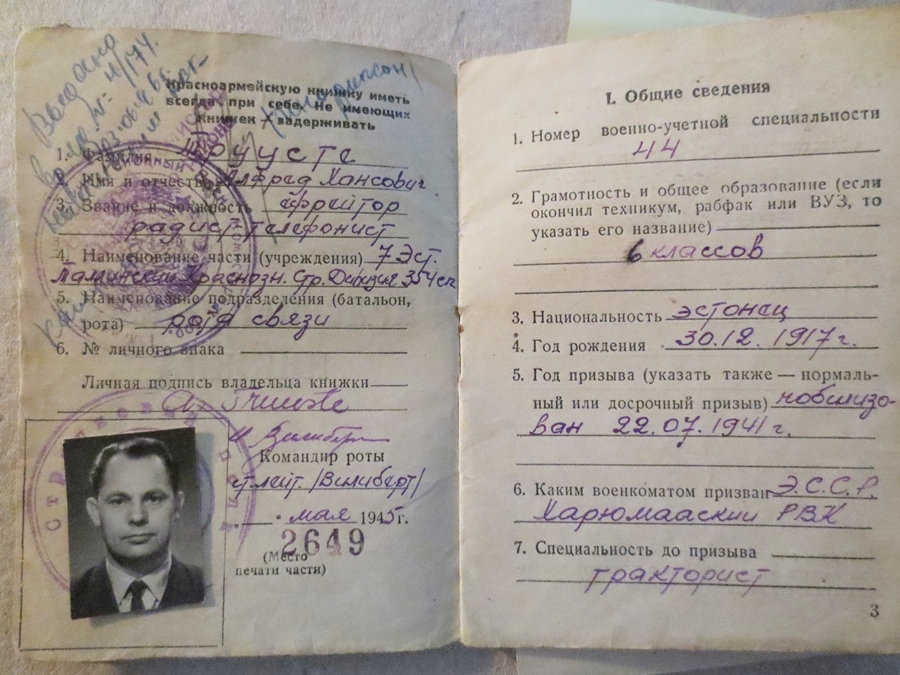 Выдано
Красноармейскую книжку иметь
всегда при себе. Не имеющих
книжек — задерживать
1. Фамилия Труусте
2. Имя и отчество Алфред Хансович
3. Звание и должность ефрейтор
радист-телефонист
4. Наименование части (учреждения) 7 Эст.
Краснозн. Стр. Дивизия 354 сп
5. Наименование подразделения (батальон,
рота) рота связи
6. № личного знака
Личная подпись владельца книжки
Командир роты
ст. лейт. /Вилиберт/
мая 1945 г.
2649
(Место
печати части)
I. Общие сведения
1. Номер военно-учетной специальности
44
2. Грамотность и общее образование (если
окончил техникум, рабфак или ВУЗ, то
указать его название)
6 классов
3. Национальность эстонец
4. Год рождения 30.12.1917 г.
5. Год призыва (указать также — нормаль-
ный или досрочный призыв) мобилизо-
ван 22.07.1941 г.
6. Каким военкоматом призван Э.С.С.Р.
Харюмааский РВК
7. Специальность до призыва
тракторист
3